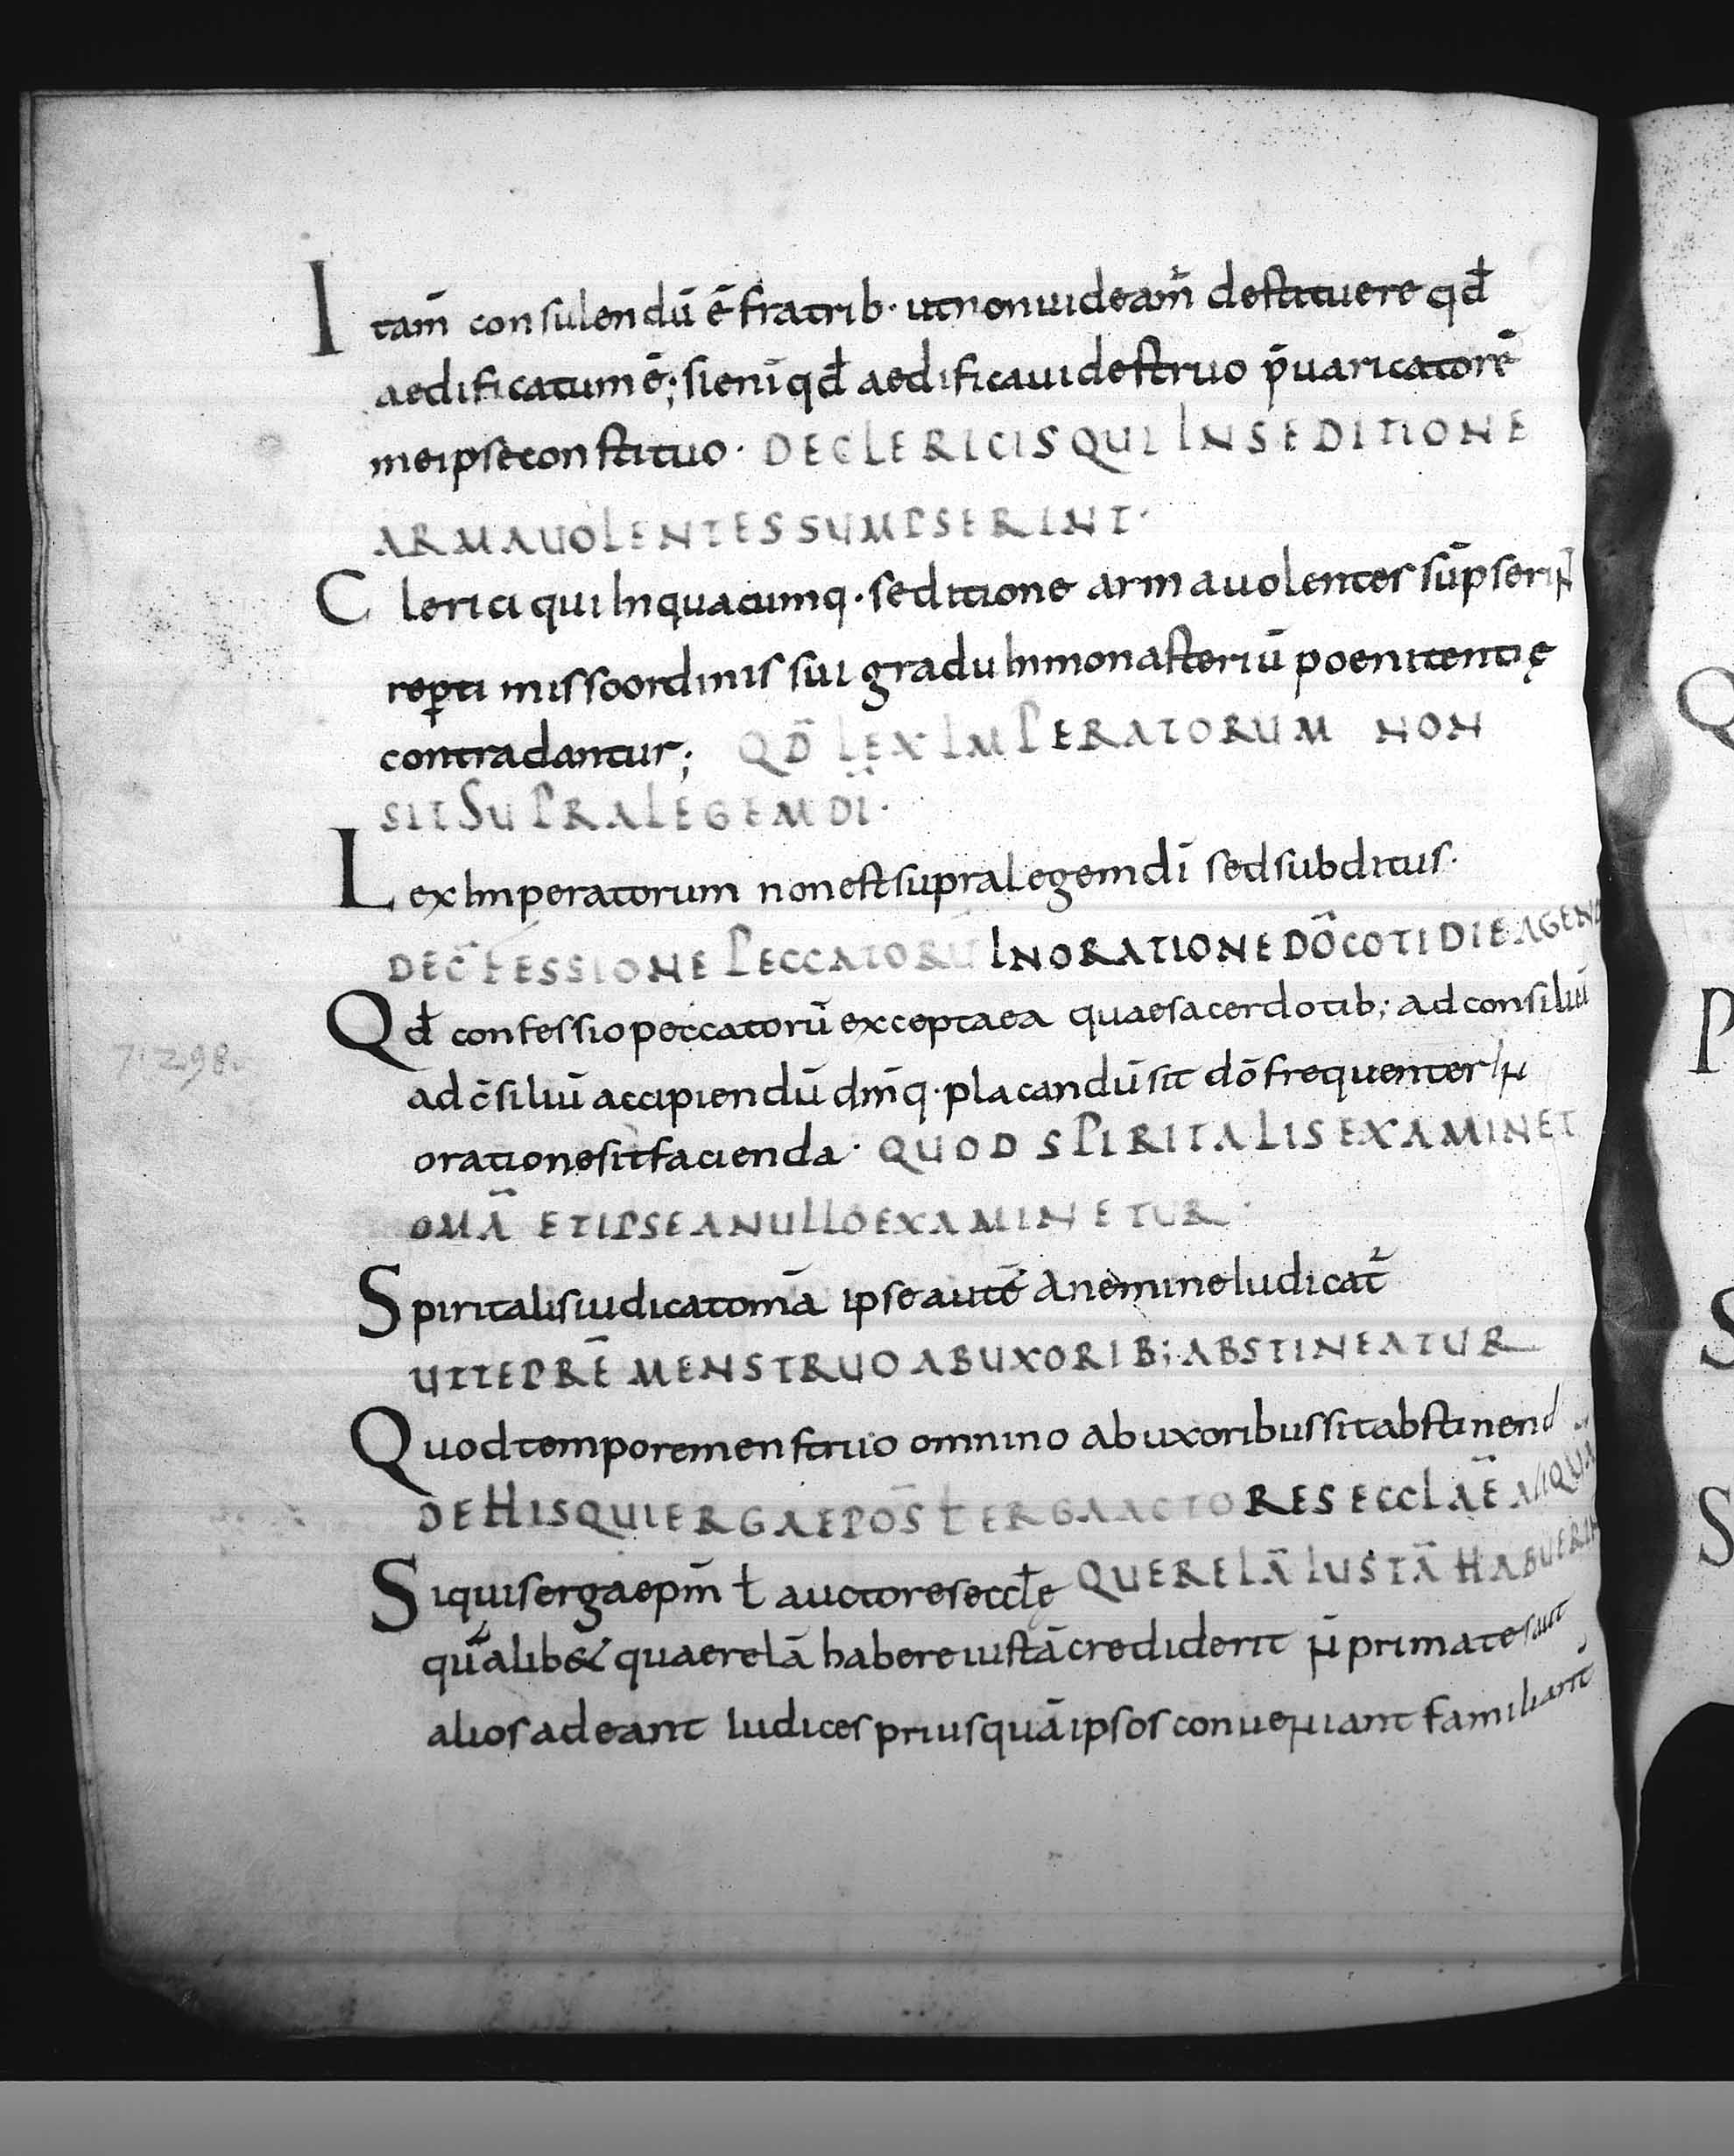 Itam̄ consulendū ē fratrib· ut non uideam̄ destituere qđ
aedificatum ē; si enī qđ aedificaui destruo p̄uaricatorē
me ipse constituo· DE CLERICIS QUI IN SEDITIONE
ARMA UOLENTES SUMPSERINT·
Clerici qui In quacumq· seditione arma uolentes sūpserīt
repti misso ordinis sui gradu In monasteriū poenitentię
contradantur; QD̄ LEX IMPERATORUM NON
SIT SUPRA LEGEM DĪ·
Lex Imperatorum non est supra legem dī sed subditus·
DE C̄FESSIONE PECCATORŪ IN ORATIONE DŌ COTIDIE AGEN
Qđ confessio peccatorū excepta ea quae sacerdotib; ad consiliū
ad c̄siliū accipiendū dm̄q· placandū sit dō frequenter IN
oratione sit facienda· QUOD SPIRITALIS EXAMINET
OMĀ ET IPSE A NULLO EXAMINETUR·
Spiritalis iudicat omā ipse autē A nemine Iudicat̄
UT TEPRĒ MENSTRUO AB UXORIB; ABSTINEATUR
Quod tempore menstruo omnino Ab uxoribus sit abstinend
DE HIS QUI ERGA EPŌS ł ERGA ACTORES ECCLAĒ ALIQUĀ
Si quis erga epm̄ ł auctores eccłę QUERELĀ IUSTĀ HABUERIN
qūalib& quaerelā habere iustā crediderit N̄ primates aut
alios adeant Iudices priusquā ipsos conueniant familiarit
7. 298.